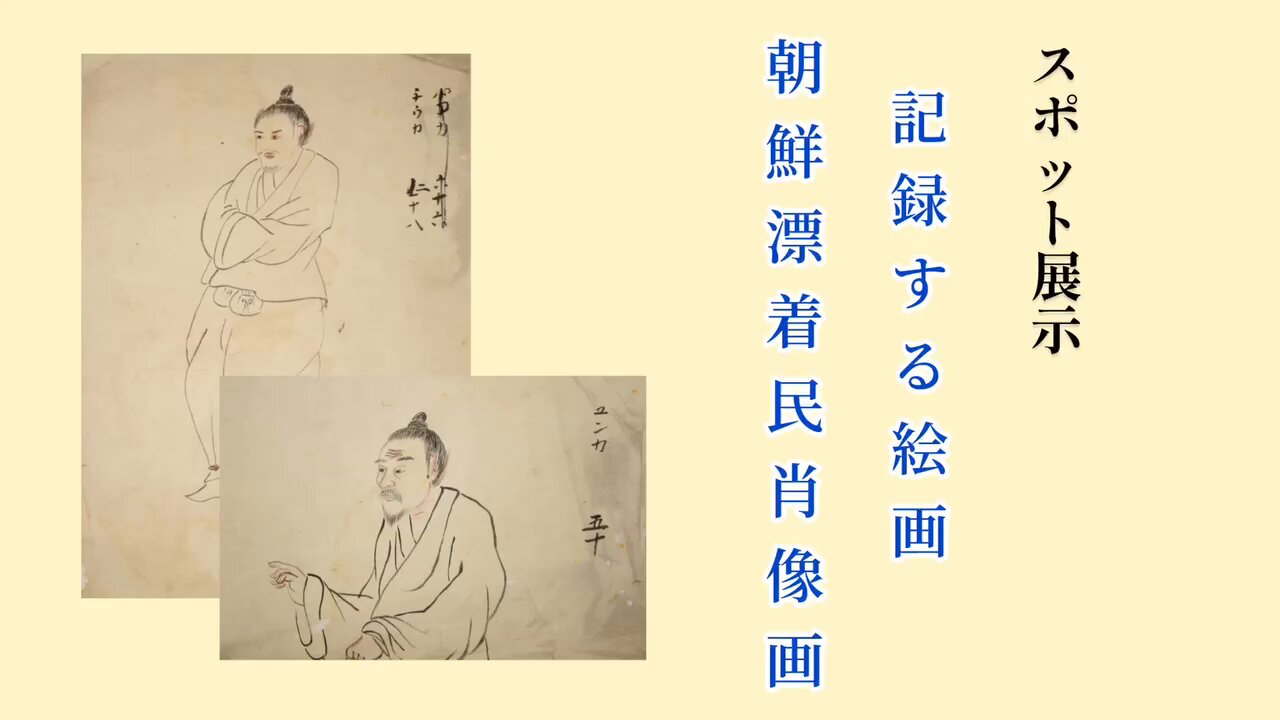 スポット展示
記録する絵画
朝鮮漂着民肖像画
チウカ
仁十八
ユンカ
五十